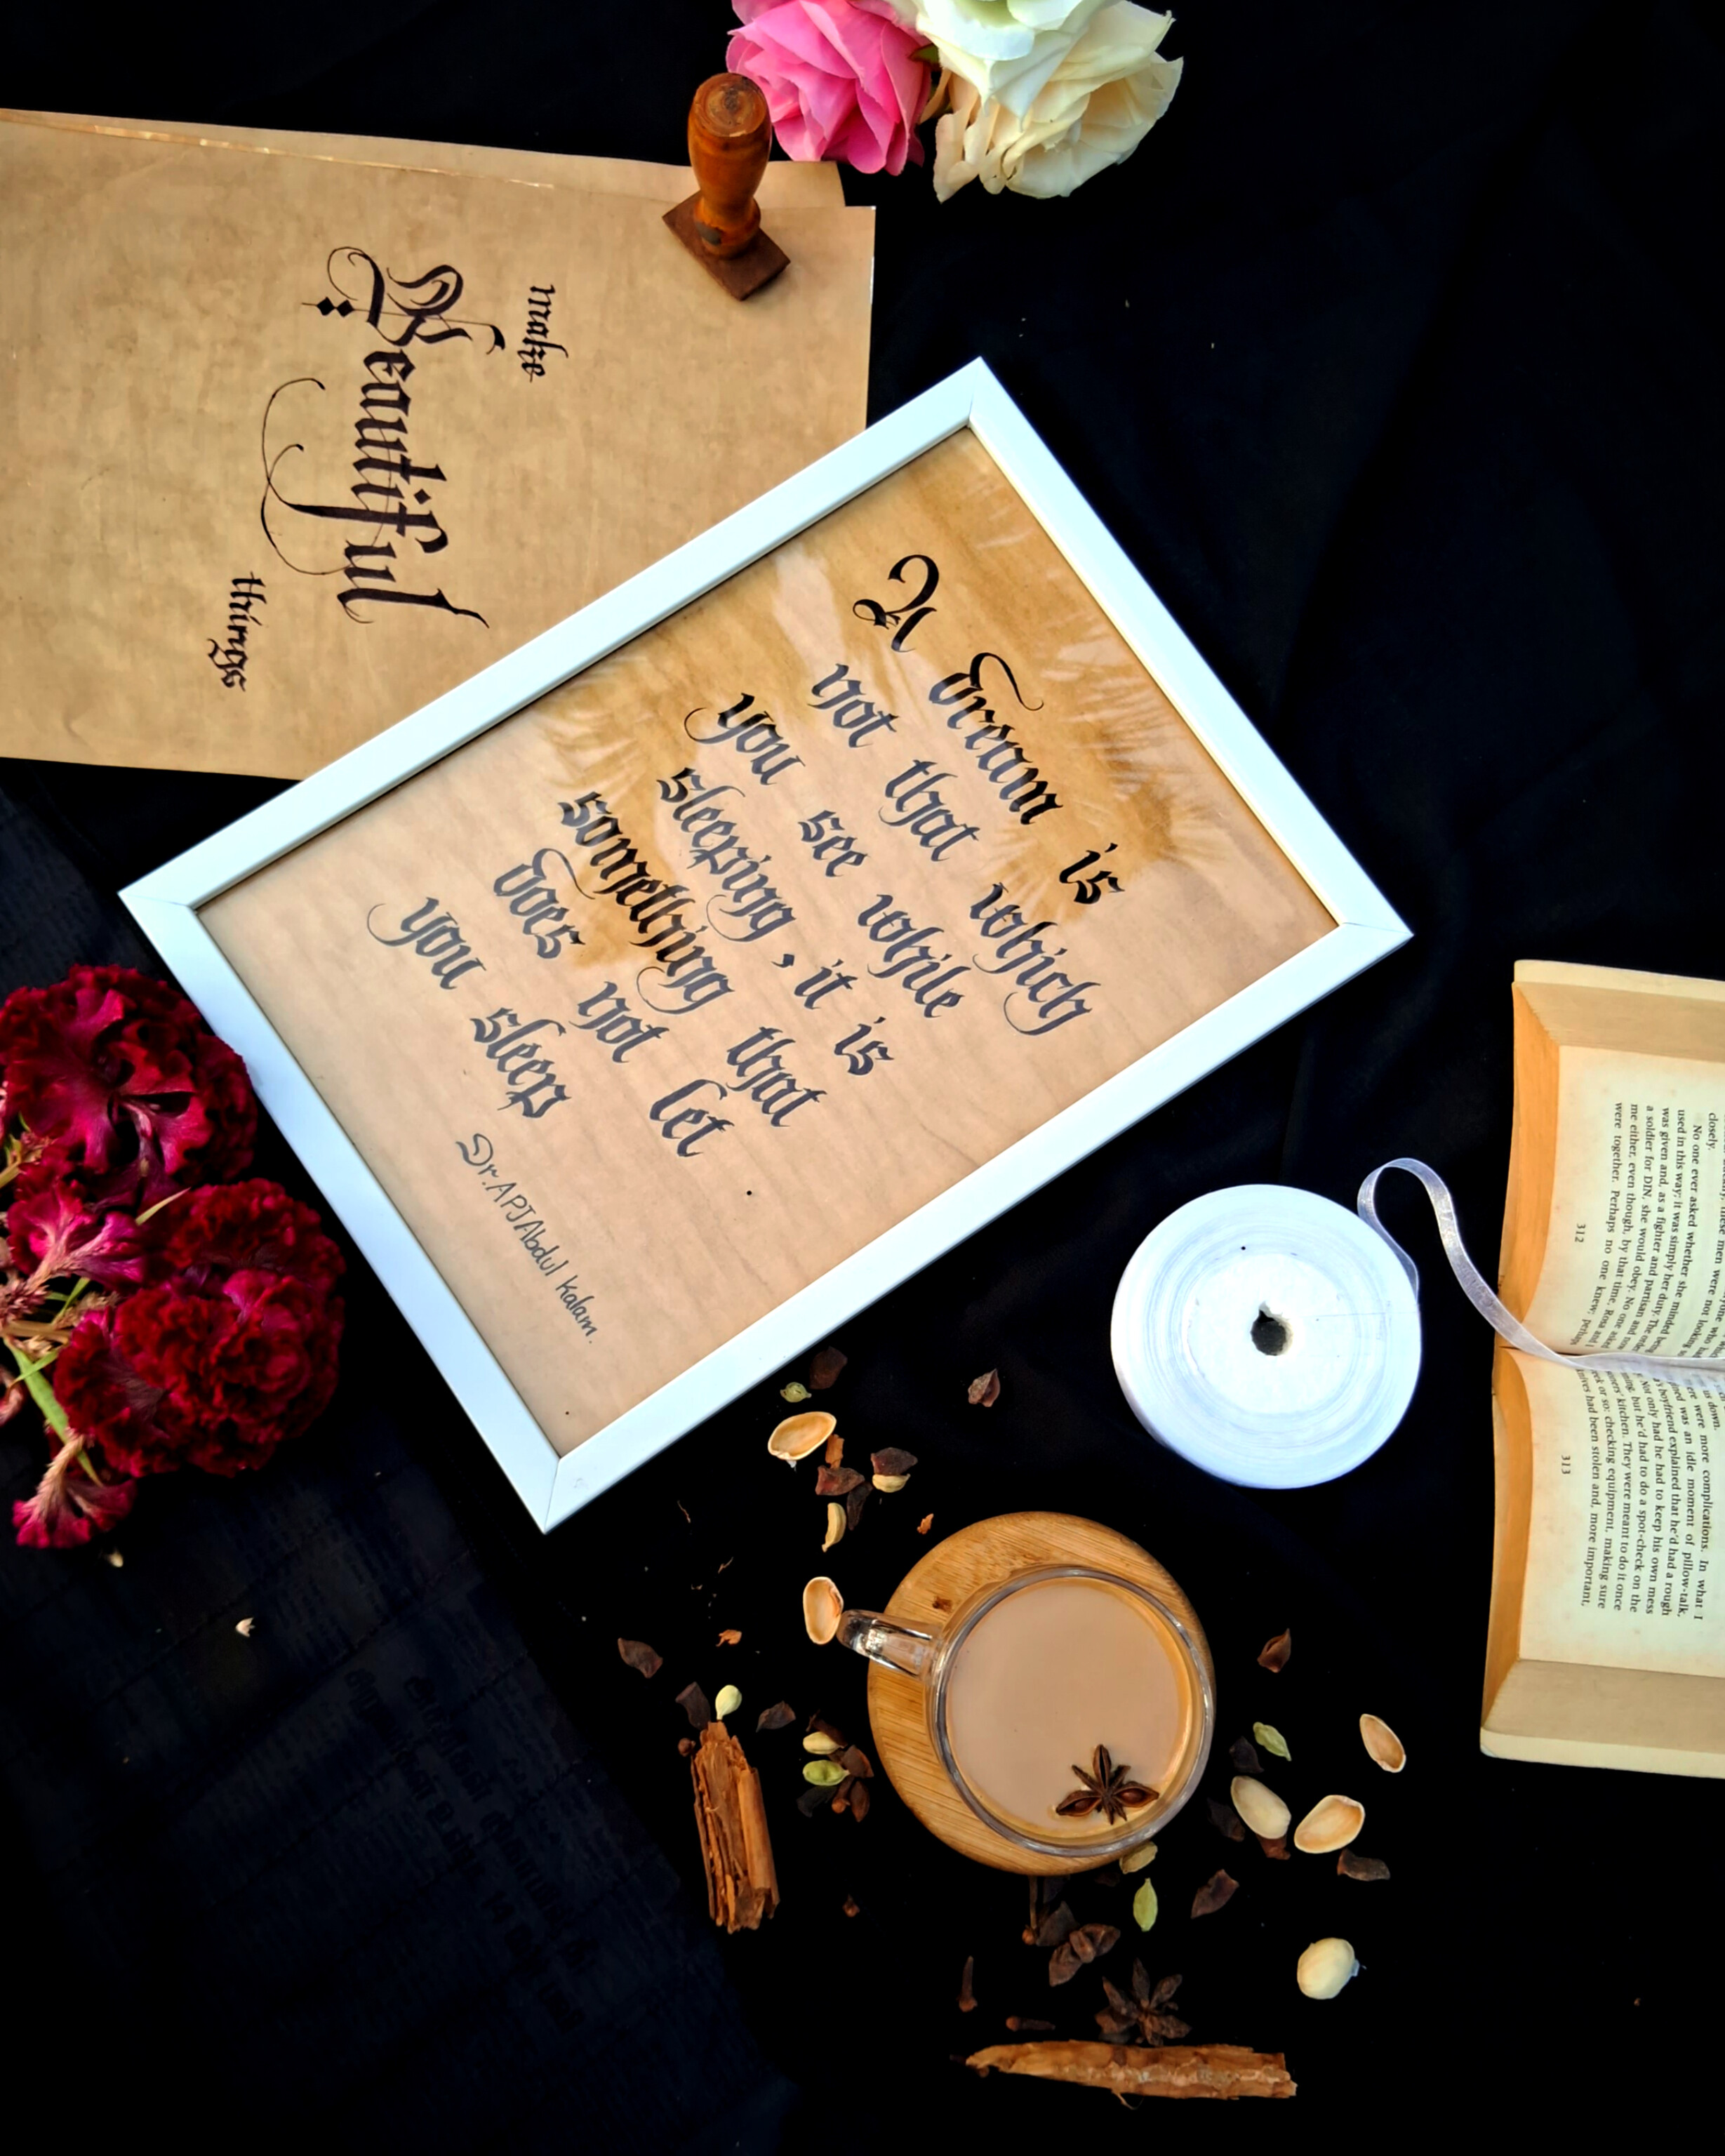 make
Beautiful
things
A dream is
not that which
you see while
sleeping, it is
something that
does not let
you sleep
Dr. APJ Abdul Kalam.
closely.
No one ever asked whether she minded
used in this way; it was simply her duty. The
was given and, as a fighter and partisan and
a soldier for DIN, she would obey. No one
me either, even though, by that time, Rosa and I
were together. Perhaps no one knew; perhaps
312
us down.
were more complications. In what I
was an idle moment of pillow-talk,
boyfriend explained that he'd had a rough
Not only had he had to keep his own mess
but he'd had to do a spot-check on the
kitchen. They were meant to do it once
or so: checking equipment, making sure
knives had been stolen and, more important,
313